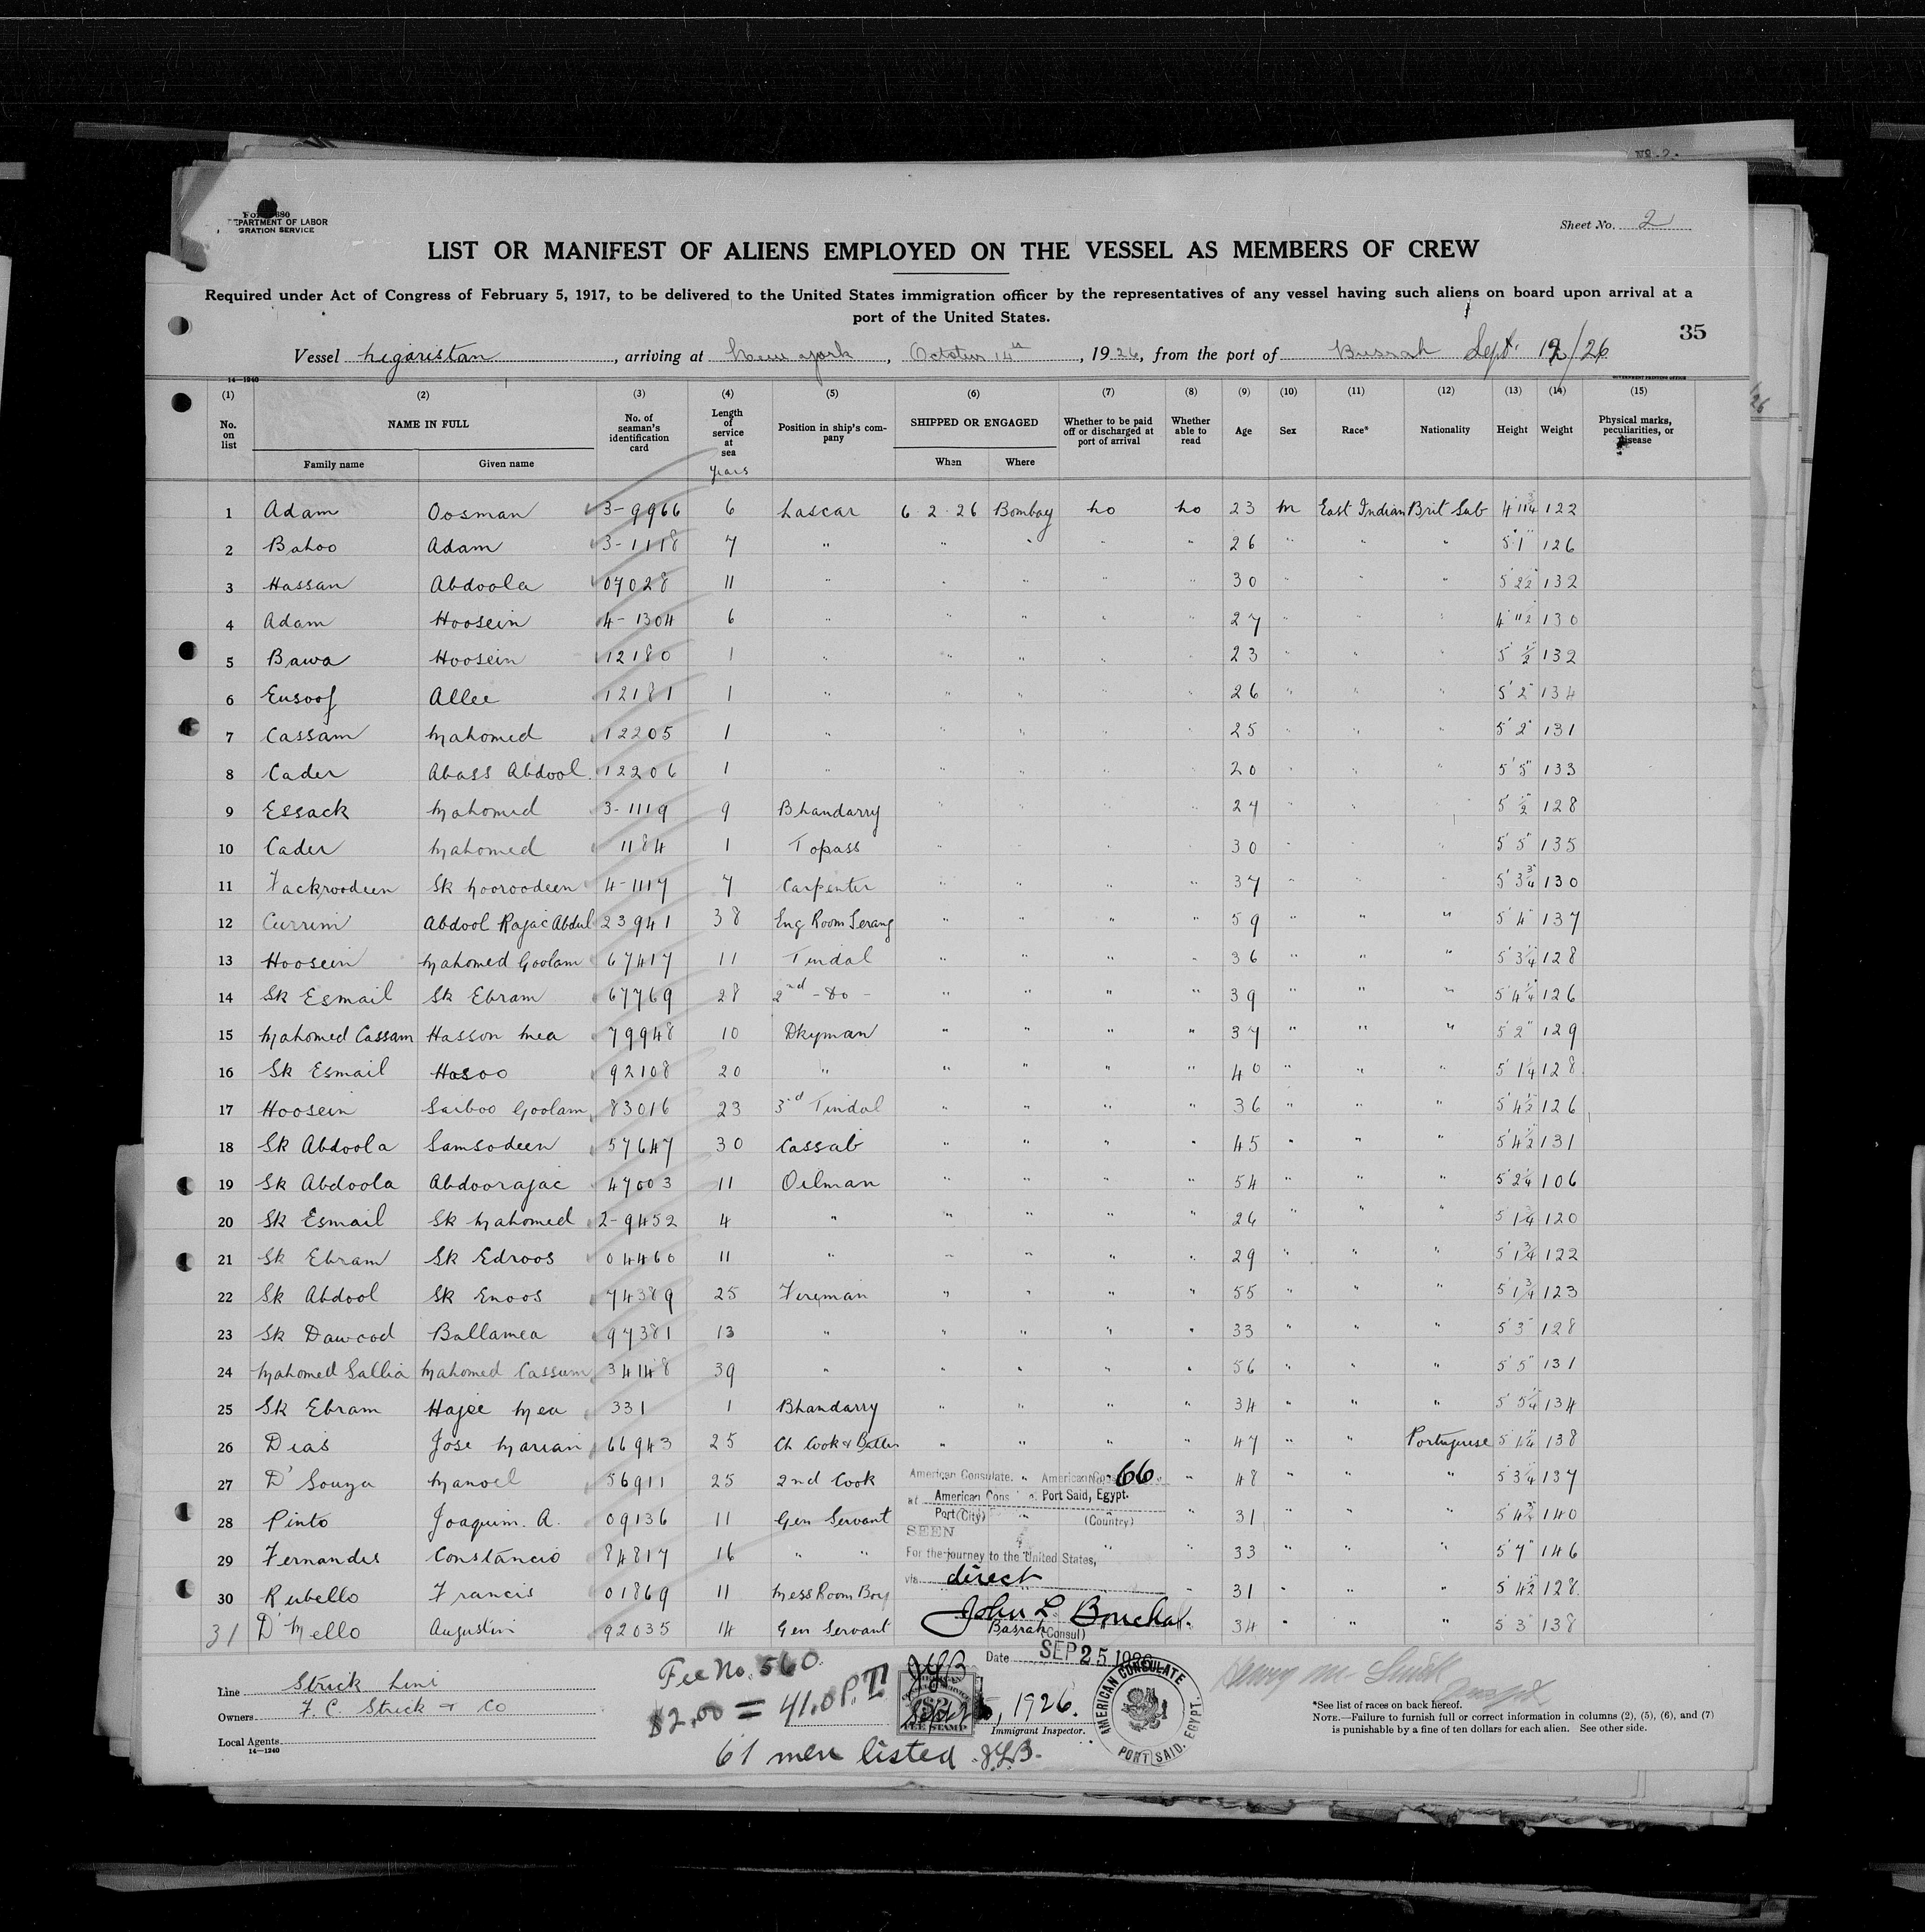 No. 2.
680
DEPARTMENT OF LABOR
GRATION SERVICE
Sheet No. 2
LIST OR MANIFEST OF ALIENS EMPLOYED ON THE VESSEL AS MEMBERS OF CREW
Required under Act of Congress of February 5, 1917, to be delivered to the United States immigration officer by the representatives of any vessel having such aliens on board upon arrival at a
port of the United States.
35
Vessel Nigaristan, arriving at New York, October 14th, 1926, from the port of Busrah Sept. 12/26
14—1240 GOVERNMENT PRINTING OFFICE
(1) (2) (3) (4) (5) (6) (7) (8) (9) (10) (11) (12) (13) (14) (15)
No. on list NAME IN FULL No. of seaman's identification card Length of service at sea Position in ship's company SHIPPED OR ENGAGED Whether to be paid off or discharged at port of arrival Whether able to read Age Sex Race* Nationality Height Weight Physical marks, peculiarities, or disease
Family name Given name years When Where
1 Adam Oosman 3-9966 6 Lascar 6 2 26 Bombay No No 23 M East Indian Brit Sub 4 11¾ 122
2 Bahoo Adam 3-1118 7 " " " " " 26 " " " 5'1" 126
3 Hassan Abdoola 07028 11 " " " " " 30 " " " 5 2½ 132
4 Adam Hoosein 4-1304 6 " " " " " 27 " " " 4 11½ 130
5 Bawa Hoosein 12180 1 " " " " " 23 " " " 5 ½ 132
6 Eusoof Allee 12181 1 " " " " " 26 " " " 5'2" 134
7 Cassam Mahomed 12205 1 " " " " " 25 " " " 5'2" 131
8 Cader Abass Abdool 12206 1 " " " " " 20 " " " 5'5" 133
9 Essack Mahomed 3-1119 9 Bhandarry " " " " 27 " " " 5 ½ 128
10 Cader Mahomed 1184 1 Topass " " " " 30 " " " 5'5" 135
11 Fackroodeen Sk Nooroodeen 4-1117 7 Carpenter " " " " 37 " " " 5'3¾ 130
12 Currim Abdool Rajac Abdul 23941 38 Eng Room Serang " " " " 59 " " " 5'4" 137
13 Hoosein Mahomed Goolam 67417 11 Tindal " " " " 36 " " " 5'3¼ 128
14 Sk Esmail Sk Ebram 67769 28 2nd - do - " " " " 39 " " " 5'4¼ 126
15 Mahomed Cassam Hasson Mea 79948 10 Dkyman " " " " 37 " " " 5'2" 129
16 Sk Esmail Hasoo 92108 20 " " " " " 40 " " " 5'1¼ 128
17 Hoosein Saiboo Goolam 83016 23 3rd Tindal " " " " 36 " " " 5'4½ 126
18 Sk Abdoola Samsodeen 57647 30 Cassab " " " " 45 " " " 5'4½ 131
19 Sk Abdoola Abdoorajac 47003 11 Oilman " " " " 54 " " " 5'2¼ 106
20 Sk Esmail Sk Mahomed 2-9452 4 " " " " " 26 " " " 5 1¼ 120
21 Sk Ebram Sk Edroos 04460 11 " " " " " 29 " " " 5'1¾ 122
22 Sk Abdool Sk Enoos 74389 25 Fireman " " " " 55 " " " 5 1¾ 123
23 Sk Dawood Ballamea 97381 13 " " " " " 33 " " " 5'3" 128
24 Mahomed Sallia Mahomed Cassum 34148 39 " " " " " 56 " " " 5'5" 131
25 Sk Ebram Hajee Mea 331 1 Bhandarry " " " " 34 " " " 5'5¼ 134
26 Dias Jose Marian 66943 25 Ch Cook & Butler " " " " 47 " " Portuguese 5'1¼ 138
27 D'Souza Manoel 56911 25 2nd Cook " 48 " " " 5 3¼ 137
28 Pinto Joaquim. A. 09136 11 Gen Servant " 31 " " " 5 4¾ 140
29 Fernandes Constancio 84817 16 " " " " 33 " " " 5'7" 146
30 Rubello Francis 01869 11 Mess Room Boy " 31 " " " 5 4½ 128
31 D'Mello Augustin 92035 14 Gen Servant 34 " " " 5 3" 138
American Consulate. No. 66
at Port Said, Egypt.
(City) (Country)
SEEN
For the journey to the United States,
via direct
John L. Bouchal.
Basrah (Consul)
Date SEP 25 1926
Line Strick Line
Owners F. C. Strick & Co
Local Agents
14—1240
Fee No. 560.
$2.00 = 41.0 P.T.
JLB
$2
FEE STAMP
Sept 25, 1926.
Immigrant Inspector.
61 men listed JLB.
AMERICAN CONSULATE
PORT SAID, EGYPT.
Henry M. Smith
*See list of races on back hereof.
NOTE.—Failure to furnish full or correct information in columns (2), (5), (6), and (7)
is punishable by a fine of ten dollars for each alien. See other side.